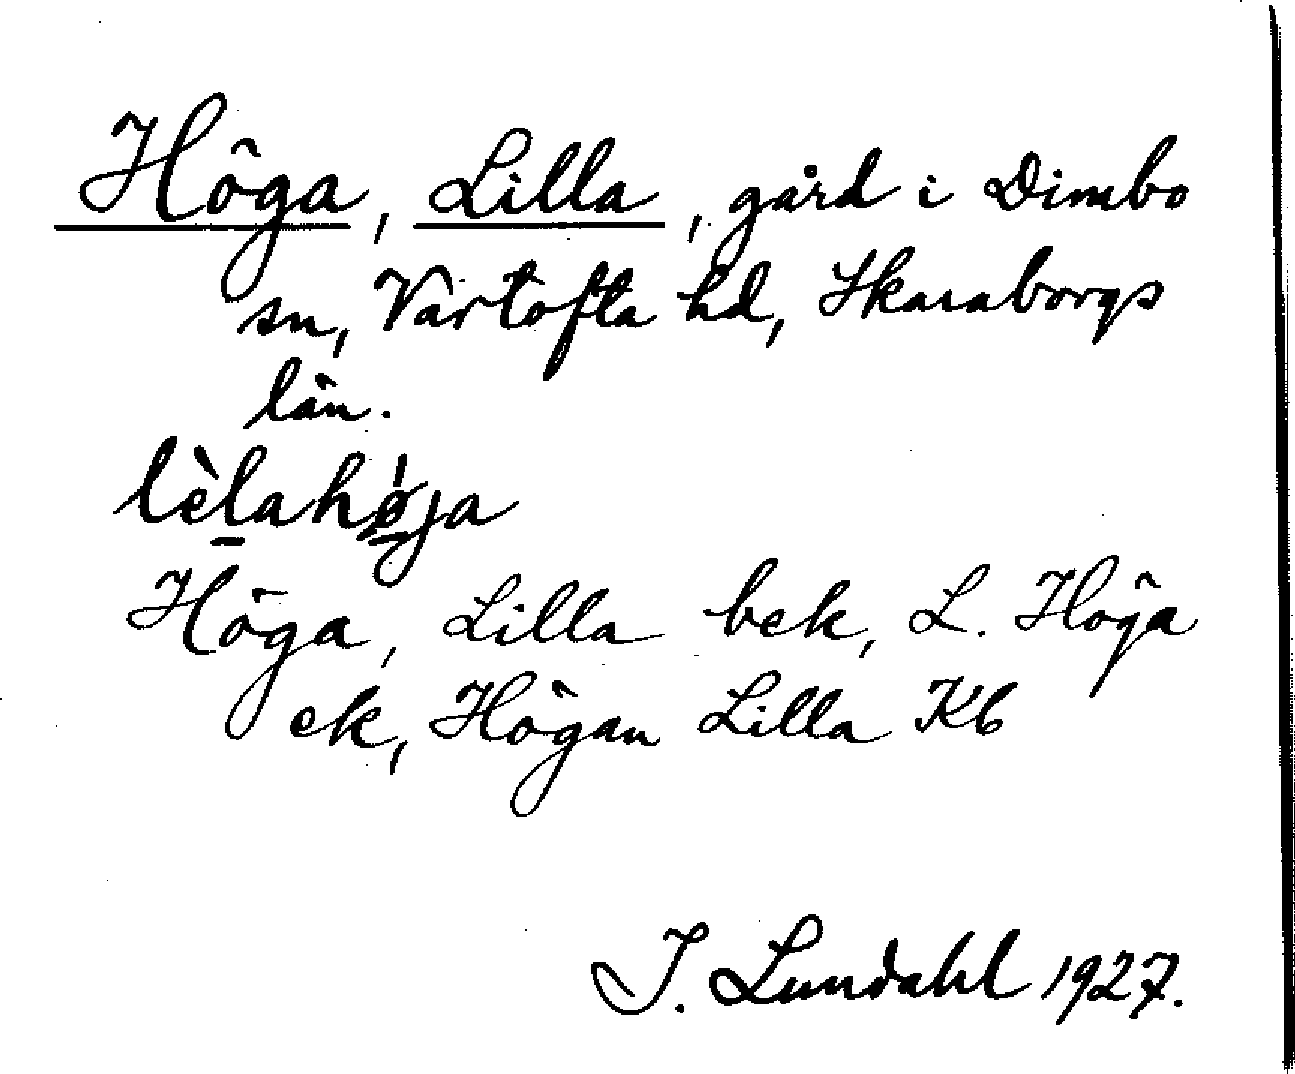 Höga, Lilla, gård i Dimbo
sn, Vartofta hd, Skaraborgs
län.
lèlahø̀ja
Höga, Lilla bek, L. Höja
ek, Högan Lilla Kb
I. Lundahl 1927.